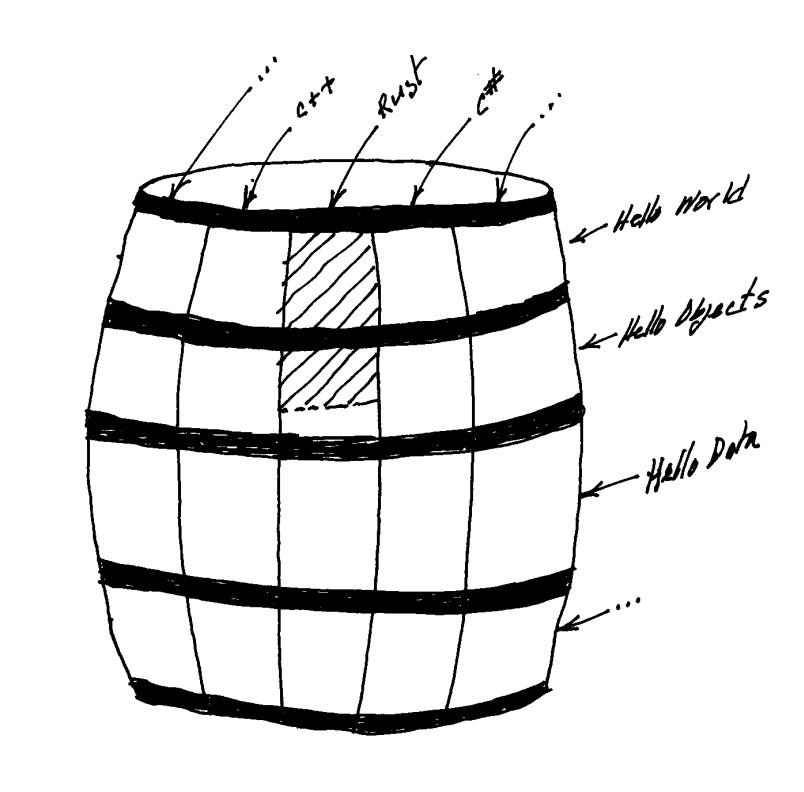 ...
C++
Rust
C#
...
Hello World
Hello Objects
Hello Data
...